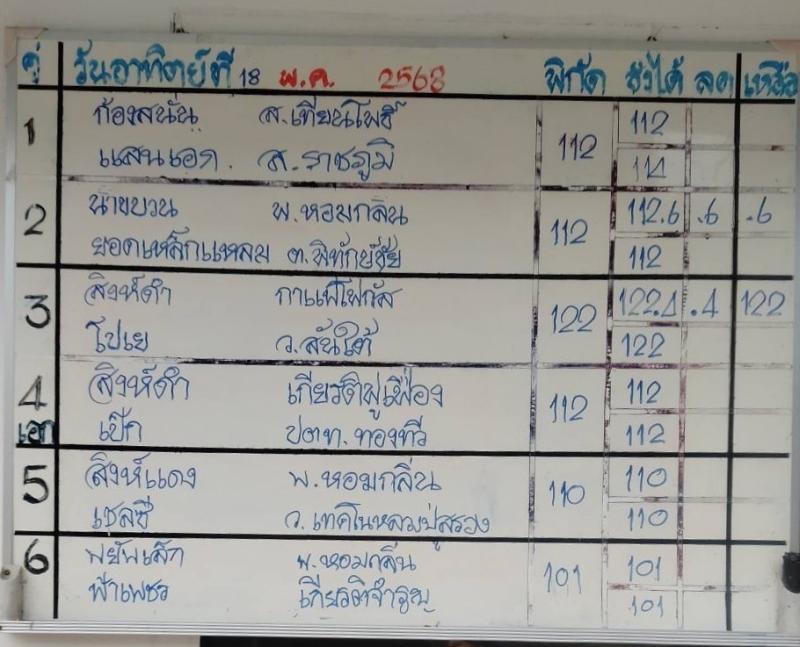 คู่ วันอาทิตย์ที่ 18 พ.ค. 2568 พิกัด ชั่งได้ ลด เหลือ
1 ก้องสนั่น ส.เทียนโพธิ์ 112 112
แสนเอก. ส.ราชภูมิ 111
2 น้าขบวน พ.หอมกลิ่น 112 112.6 .6 .6
ยอดเหล็กแหลม ต.พิทักษ์ชัย 112
3 สิงห์ดำ กาแฟโฟกัส 122 122.4 .4 122
โปเย ว.สันใต้ 122
4 สิงห์ดำ เกียรติภูเฟือง 112 112
เอก เป๊ก ปตท.ทองทวี 112
5 สิงห์แดง พ.หอมกลิ่น 110 110
เชลซี ว.เทคโนหลวงปู่สรวง 110
6 พยัพเล็ก พ.หอมกลิ่น 101 101
ฟ้าเพชร เกียรติจำรูญ 101